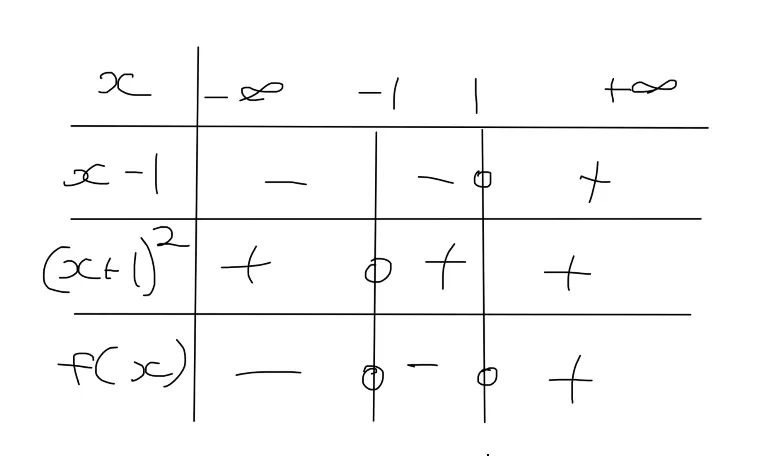 x -∞ -1 1 +∞
x-1 - - 0 +
(x+1)² + 0 + +
f(x) - 0 - 0 +